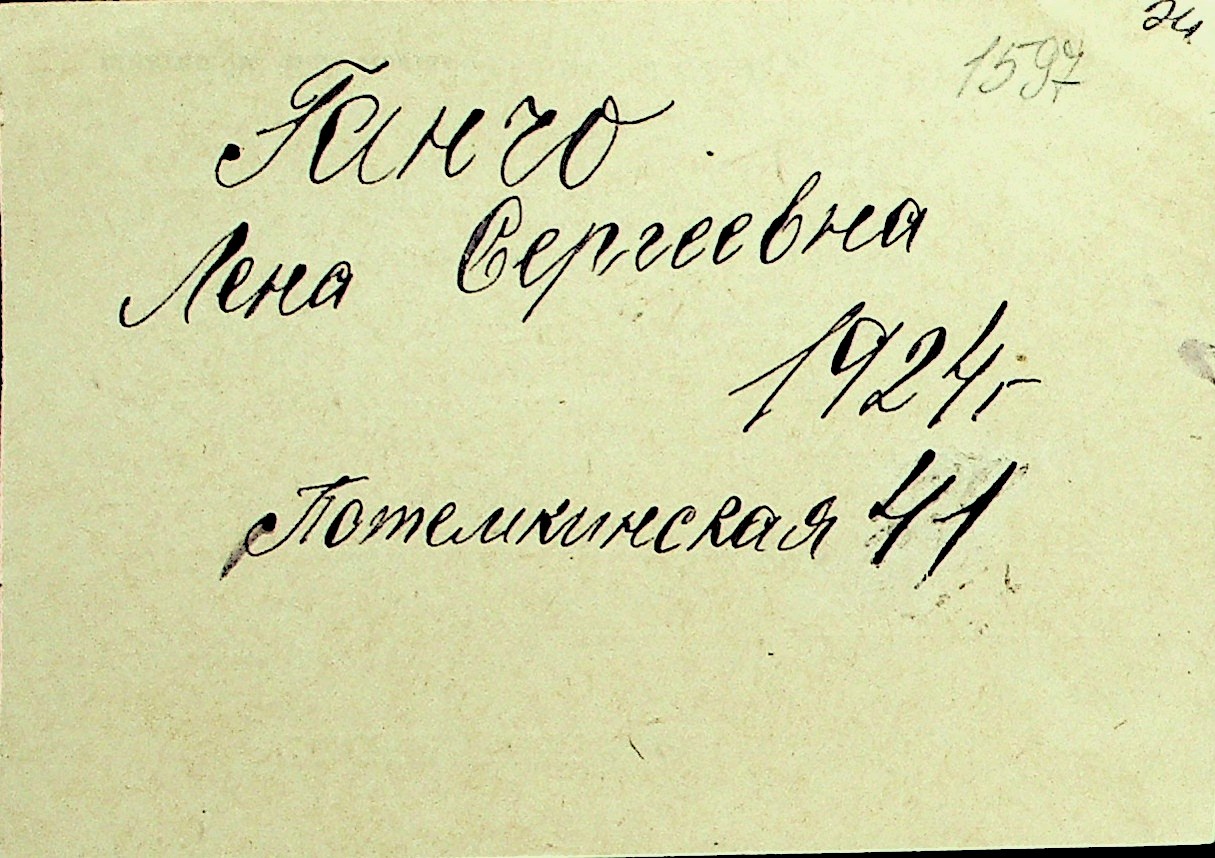 1597
Ганчо
Лена Сергеевна
1924г
Потемкинская 41